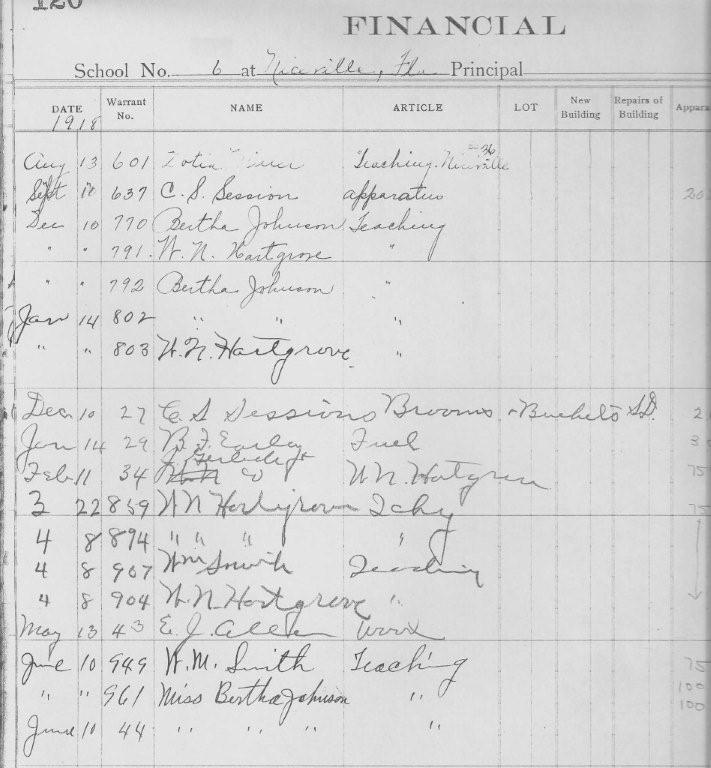 120
FINANCIAL
School No. 6 at Niceville, Fla. Principal
DATE Warrant No. NAME ARTICLE LOT New Building Repairs of Building Appara
1918
36
Aug 13 601 Teaching Niceville
Sept 10 637 C. S. Session apparatus 20
Dec 10 770 Bertha Johnson Teaching
" " 791. W. N. Hartgrove "
" " 792 Bertha Johnson "
Jan 14 802 " " "
" " 803 W. N. Hartgrove "
Dec 10 27 C S Sessions Brooms & Buckets S.D. 2
Jan 14 29 B. F. Early Fuel 3
Feb 11 34 W N Hatgrove 75
3 22 859 W N Hortgrove Tchg 75
4 8 894 " " " "
4 8 907 Wm Smith Teaching
4 8 904 W. N. Hortgrove "
May 13 43 E. J. Allen Wood
June 10 949 W. M. Smith Teaching 75
" " 961 Miss Bertha Johnson " 100
100
June 10 44 " " " "